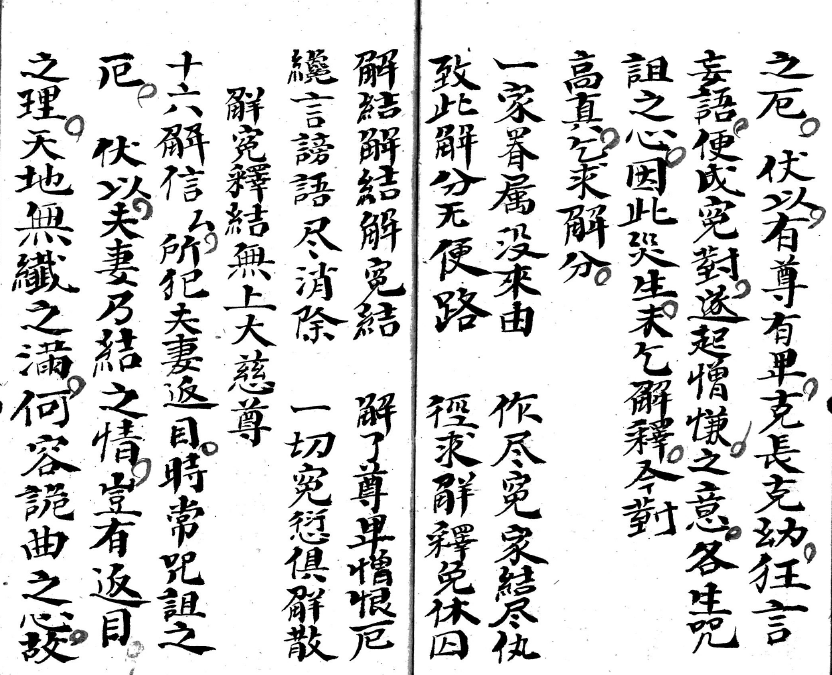 之厄。伏以有尊有卑。克長克幼。狂言
妄語。便成冤對。遂起憎慊之意。各生咒
詛之心。因此災生。未乞解釋。今對
高真。乞求解分。
一家眷属没來由 作尽冤家結尽仇
致此解分无便路 徑求解釋免休囚
解結解結解冤結 解了尊卑憎恨厄
纔言謗語尽消除 一切冤愆俱解散
解冤釋結無上大慈尊
十六解信厶。所犯夫妻返目。時常咒詛之
厄。伏以。夫妻乃結之情。豈有返目
之理。天地無纖之滿。何容詭曲之心。故